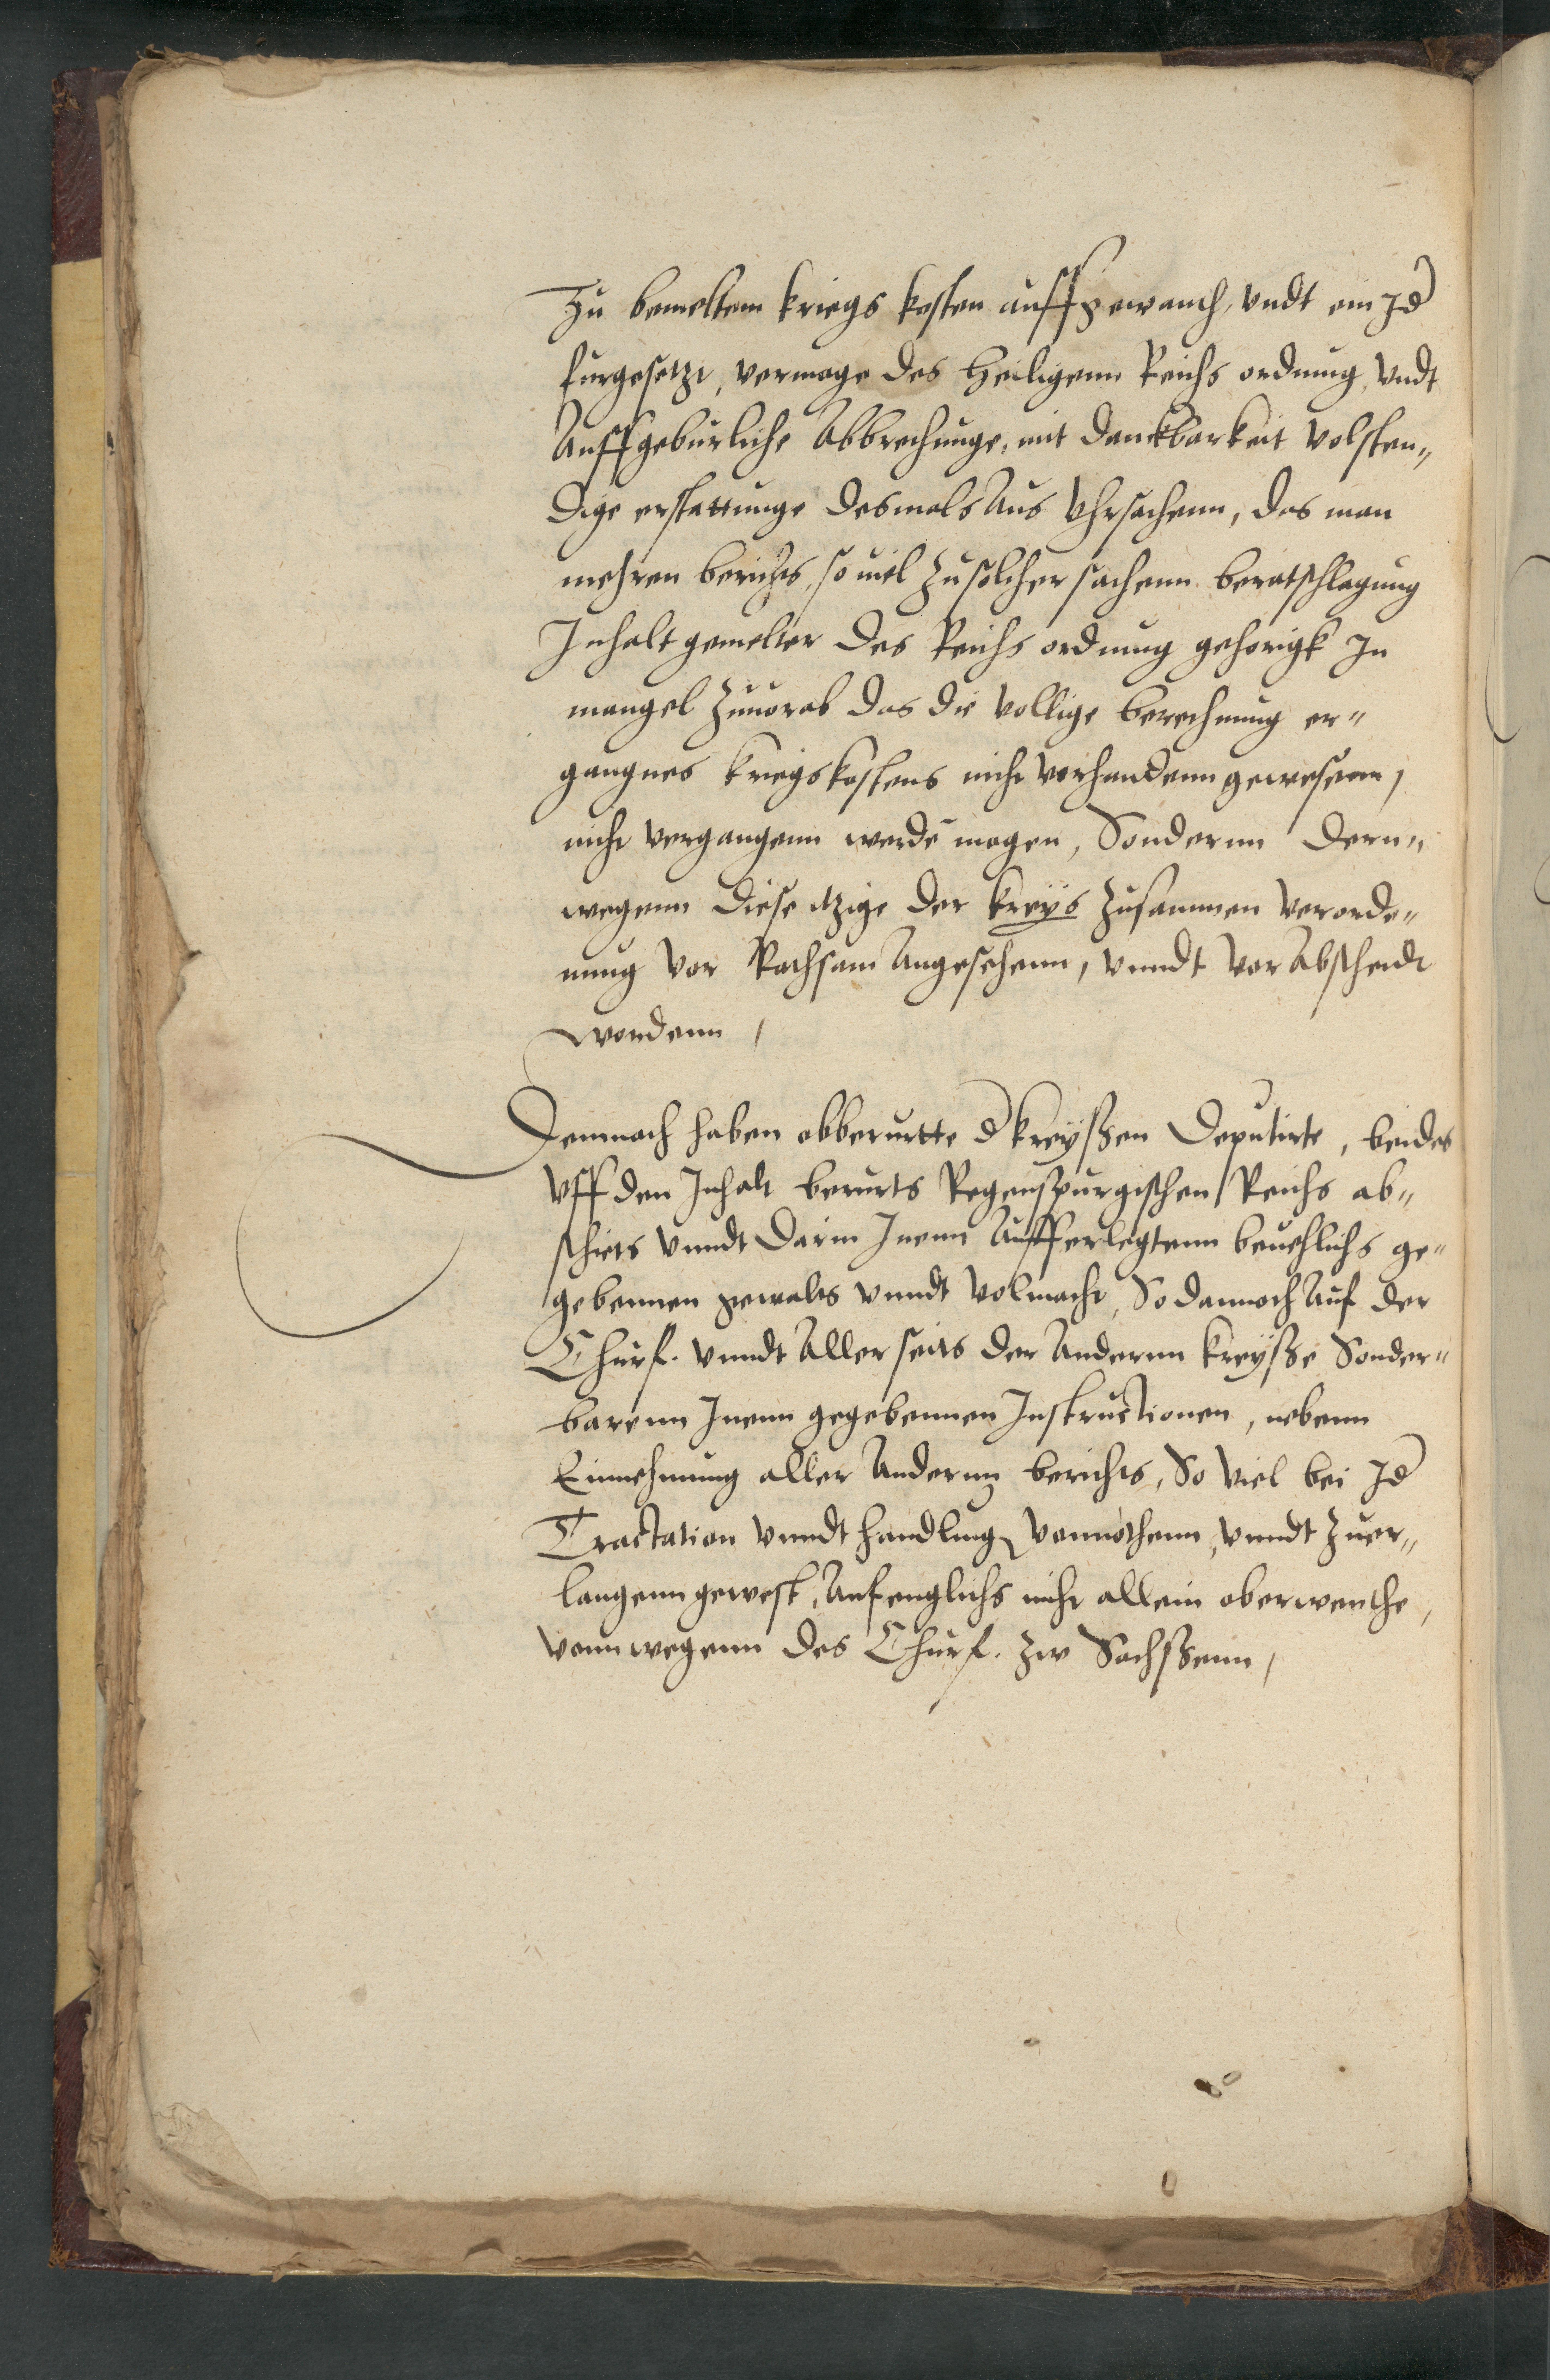 Zu bemeltem kriegs kosten auffgewanth, vndt ein Jd
furgesetzt, vermoge des Heiligenn Reichs ordnung, vndt
Auff geburliche Abbrechunge, mit danckbarkeit volsten„
dige erstattunge desmals Aus Vhrsachenn, das man
mehren berichts, so uiel zu solcher sachenn beratschlagung
Inhalt gemelter des Reichs ordnung gehorigk In
mangel zuuorab das die vollige berechnung er„
gangnes kriegskostens nicht vorhandenn gewesenn,
nicht vorgangenn werdē mogen, Sondernn dern„
wegenn diese itzige der kreys zusammen verorde„
nung vor Rathsam Angesehenn, vnndt vor Abscheidt
wordenn,
Demnach haben obberurtte d kreyssen Deputirte, beides
vff den Inhalt berurts Regenspurgischen Reichs ab„
schiets vnndt darin Inenn Aufferlegtenn beuehlichs ge„
gebennen gewalts vnndt volmacht, So dannoch Auf der
Churf. vnndt Allerseits der Andernn kreysse Sonder„
barenn Inenn gegebennen Instructionen, nebenn
Einnehmung aller Andernn berichts, So viel bei Jd
Tractation vnndt handlung vonnöthenn, vnndt zuer„
langenn gewest, Anfenglichs nicht allein oberwenthe,
vonn wegenn des Churf. zw Sachssenn,